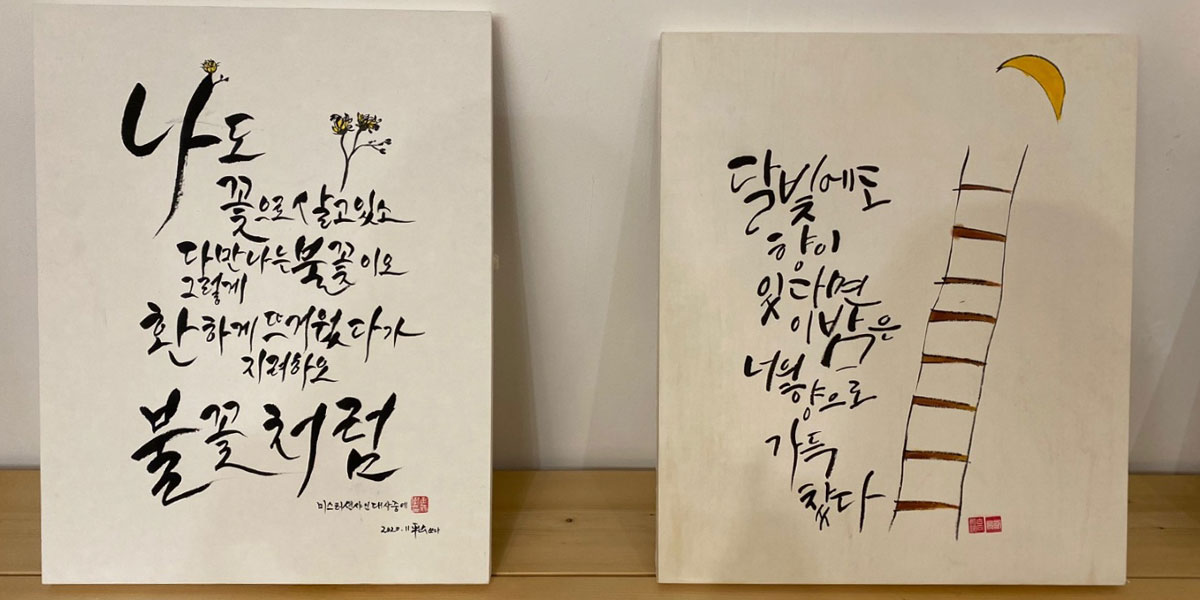 나도
꽃으로 살고있소
다만 나는 불꽃이오
그렇게
환하게 뜨거웠다가
지려하오
불꽃처럼
미스터 션샤인 대사 중에
2020.11
달빛에도
향이
있다면
이 밤은
너의
향으로
가득
찼다